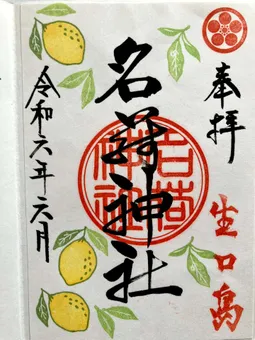 奉拝
生口島
名荷神社
名荷神社
令和六年六月